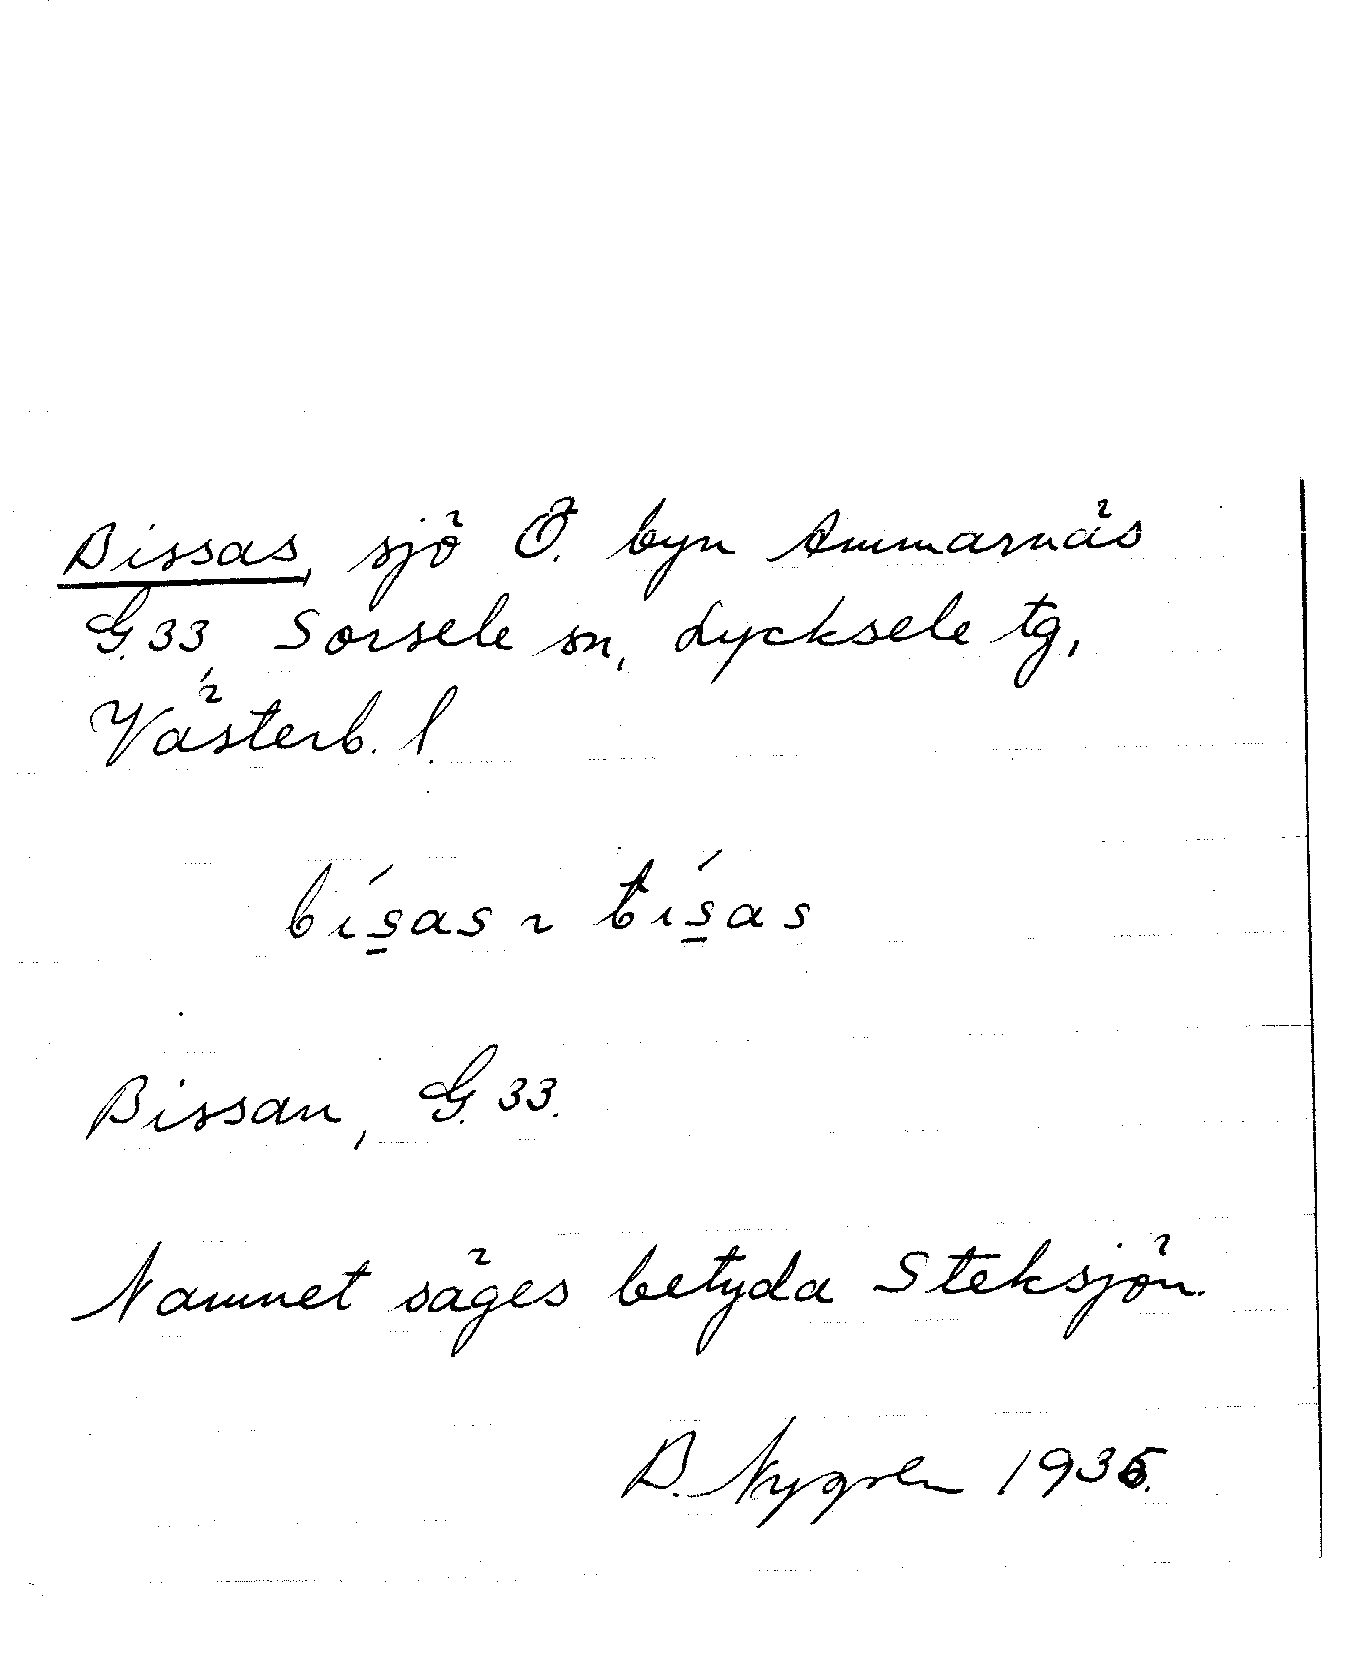 Bissas, sjö Ö. byn Ammarnäs
G.33, Sorsele sn, Lycksele tg,
Västerb. l.
bís̱as ~ tís̱as
Bissan, G. 33.
Namnet säges betyda Steksjön.
B. Nygren 1935.